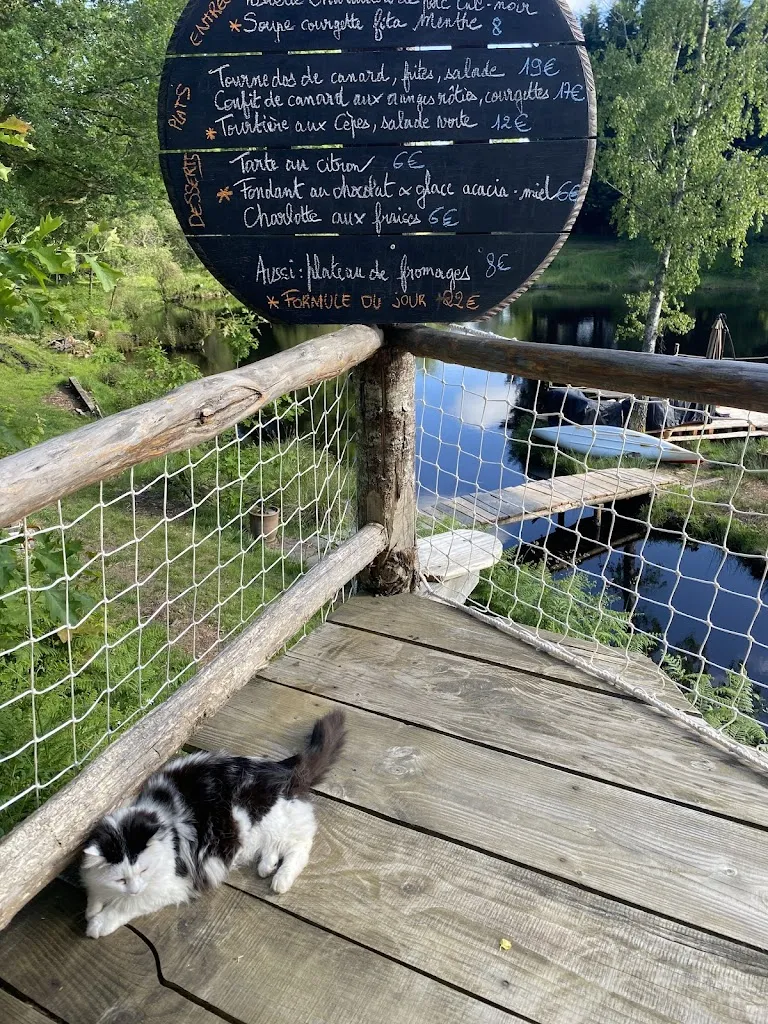 ENTRÉE
de porc cul-noir
* Soupe courgette fêta Menthe 8
PLATS
Tournedos de canard, frites, salade 19€
Confit de canard aux oranges rôties, courgettes 17€
* Tourtière aux Cèpes, salade verte 12€
DESSERTS
Tarte au citron 6€
* Fondant au chocolat & glace acacia-miel 6€
Charlotte aux fraises 6€
Aussi : plateau de fromages 8€
* FORMULE DU JOUR 22€